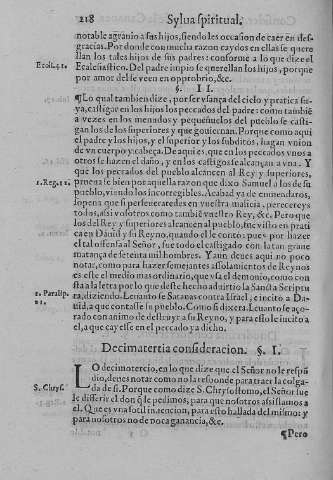 218 Sylua spiritual.
notable agrauio a sus hijos, siendoles occasion de caer en desgracias.
Por donde con mucha razon caydos en ellas se querellan
los tales hijos de sus padres: conforme a lo que dize el
Eccli.41. Ecclesiastico. Del padre impio se querellan los hijos, porque
por amor del se veen en opprobrio, &c.
§. II.
¶Lo qual tambien dize, por ser vsança del cielo y pratica suya,
castigar en los hijos los peccados del padre: como tambiē
a vezes en los menudos y pequeñuelos del pueblo se castigan
los de los superiores y que gouiernan. Porque como aqui
el padre y los hijos, y el superior y los subditos, hagan vnion
de vn cuerpo y cabeça. De aqui es, que en los peccados vnos a
otros se hazen el daño, y en los castigos se alcançan a vna. Y
que los peccados del pueblo alcancen al Rey y superiores,
1.Reg.12. prueuase bien por aquella razon que dixo Samuel a los de su
pueblo, viendolos incorregibles. Acabad ya de emendaros,
so pena que si perseueraredes en vuestra malicia, perecereys
todos, assi vosotros como tambiē vuestro Rey, &c. Pero que
los del Rey y superiores alcancen al pueblo, fue visto en pratica
en Dauid y su Reyno, quando el le conto: pues por hazer
el tal offensa al Señor, fue todo el castigado con la tan grane
matança de setenta mil hombres. Y aun deues aqui no poco
notar, como para hazer semejantes assolamientos de Reynos
es este el medio mas ordinario, que vsa el demonio, como consta
a la letra por lo que deste hecho aduirtio la Sancta Scriptura,
2. Paralip. diziendo. Leuanto se Satanas contra Israel, e incito a Dauid,
21. a que contasse su pueblo. Como si dixera. Leuanto se açorado
con animo de destruyr a su Reyno, y para esto le incito a
el, a que cayesse en el peccado ya dicho.
Decimatertia consideracion. §. I.
LO decimotercio, en lo que dize que el Señor no le respōdio,
denes notar como no la responde para traer la colgada
S. Chrys. de si. Porque como dize S. Chrysostomo, el Señor fue
le differir el don q̄ le pedimos, para que nosotros assistamos a
el. Que es vna facil inuencion, para esto hallada del mismo: y
para nosotros no de poca ganancia, &c.
¶Pero